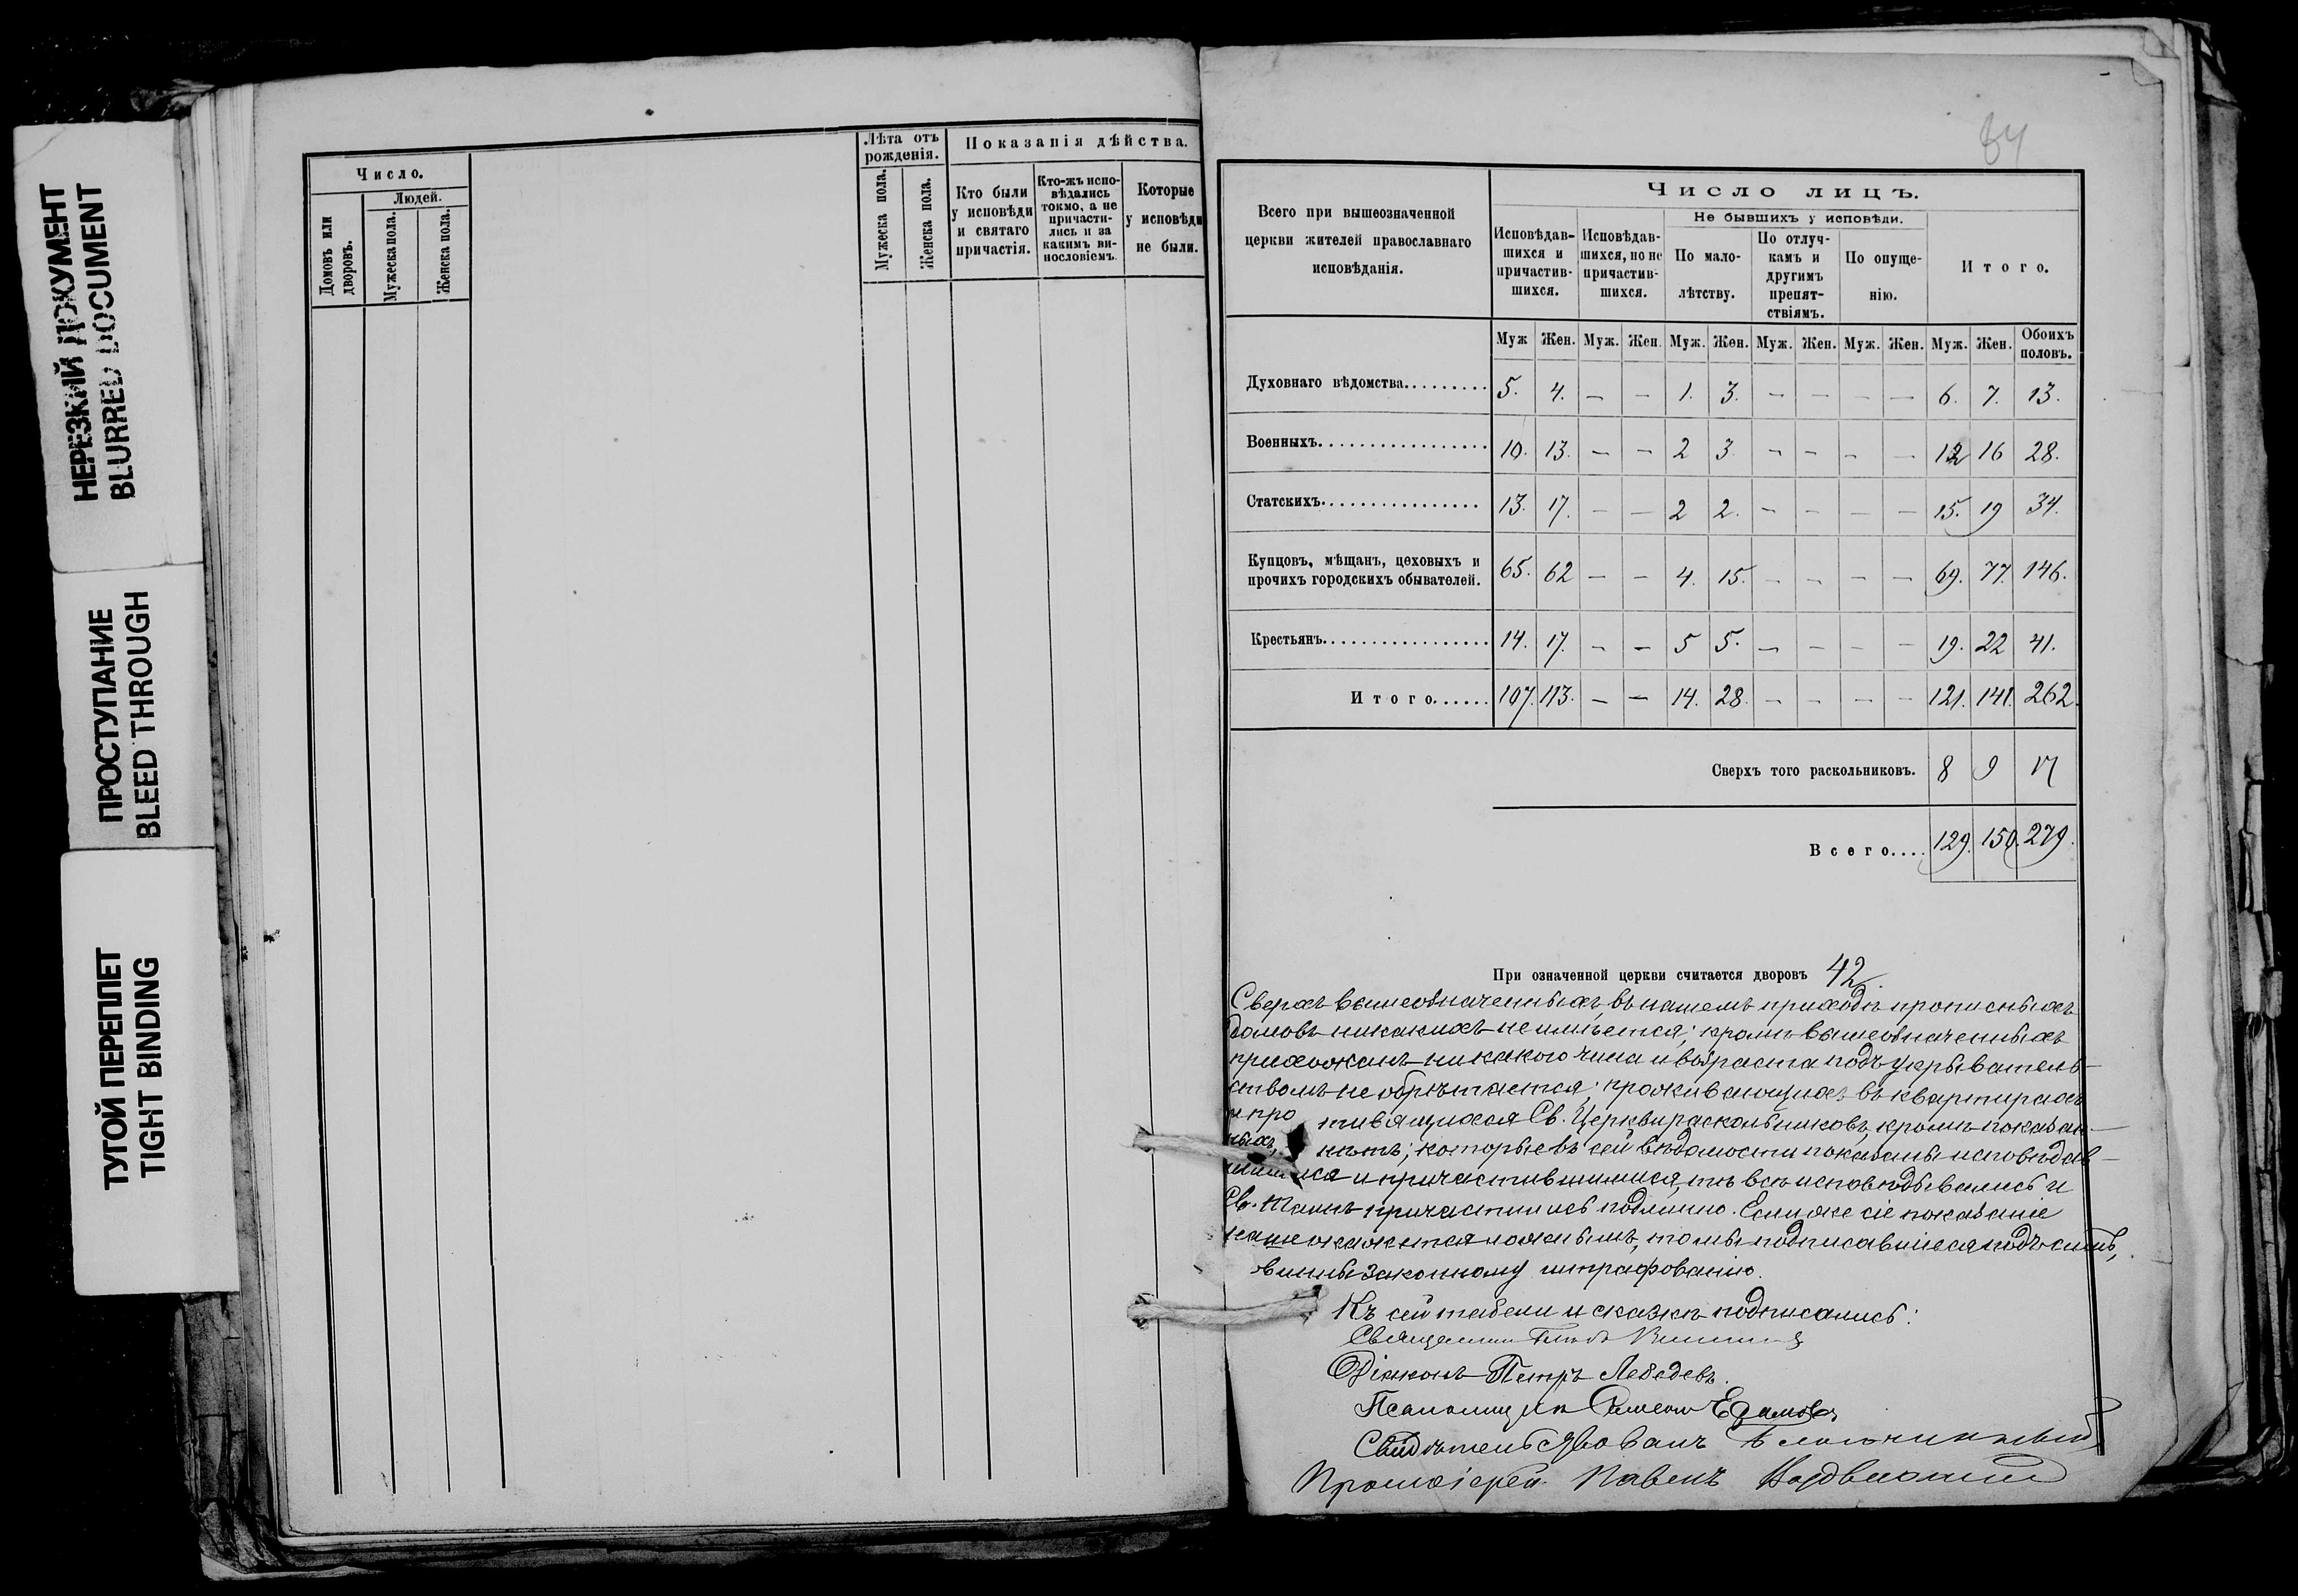 НЕРЕЗКИЙ ДОКУМЕНТ
BLURRED DOCUMENT
ПРОСТУПАНИЕ
BLEED THROUGH
ТУГОЙ ПЕРЕПЛЕТ
TIGHT BINDING
Число.
Домовъ или дворовъ.
Людей.
Мужеска пола.
Женска пола.
Лѣта отъ
рожденія.
Мужеска пола.
Женска пола.
Показанія дѣйства.
Кто были
у исповѣди
и святаго
причастія.
Кто-жъ испо-
вѣдались
токмо, а не
причасти-
лись и за
какимъ ви-
нословіемъ.
Которые
у исповѣди
не были.
84
Всего при вышеозначенной
церкви жителей православнаго
исповѣданія.
Число лицъ.
Исповѣдав-
шихся и
причастив-
шихся.
Исповѣдав-
шихся, но не
причастив-
шихся.
Не бывшихъ у исповѣди.
По мало-
лѣтству.
По отлуч-
камъ и
другимъ
препят-
ствіямъ.
По опуще-
нію.
Итого.
Муж Жен. Муж. Жен. Муж. Жен. Муж. Жен. Муж. Жен. Муж. Жен. Обоихъ половъ.
Духовнаго вѣдомства......... 5. 4. — — 1. 3. — — — — 6. 7. 13.
Военныхъ.................. 10. 13. — — 2 3. — — — — 12 16 28.
Статскихъ................. 13. 17. — — 2 2. — — — — 15. 19 34.
Купцовъ, мѣщанъ, цеховыхъ и
прочихъ городскихъ обывателей. 65. 62 — — 4. 15. — — — — 69. 77. 146.
Крестьянъ.................. 14. 17. — — 5 5. — — — — 19. 22 41.
Итого...... 107. 113. — — 14. 28. — — — — 121. 141. 262.
Сверхъ того раскольниковъ. 8 9 17
Всего.... 129. 150. 279.
При означенной церкви считается дворовъ 42.
Сверхъ вышеозначенныхъ, въ нашемъ приходѣ прописныхъ
домовъ никакихъ не имѣется; кромѣ вышеозначенныхъ
прихожанъ никакого чина и возраста подъ укрыватель-
ствомъ не обрѣтается; проживающихъ въ квартирахъ
и противящихся Св. Церкви раскольниковъ, кромѣ показан-
ныхъ, нѣтъ; которые въ сей вѣдомости показаны исповѣдав-
шимися и причастившимися, тѣ всѣ исповѣдывались и
Св. Таинъ причастились подлинно. Если же сіе показаніе
наше окажется ложнымъ, то мы подписавшіеся подъ симъ,
винны законному штрафованію.
Къ сей табели и сказкѣ подписались:
Священникъ
Діаконъ Петръ Лебедевъ.
Псаломщикъ
Свидѣтельствовалъ Благочинный
Протоіерей Павелъ